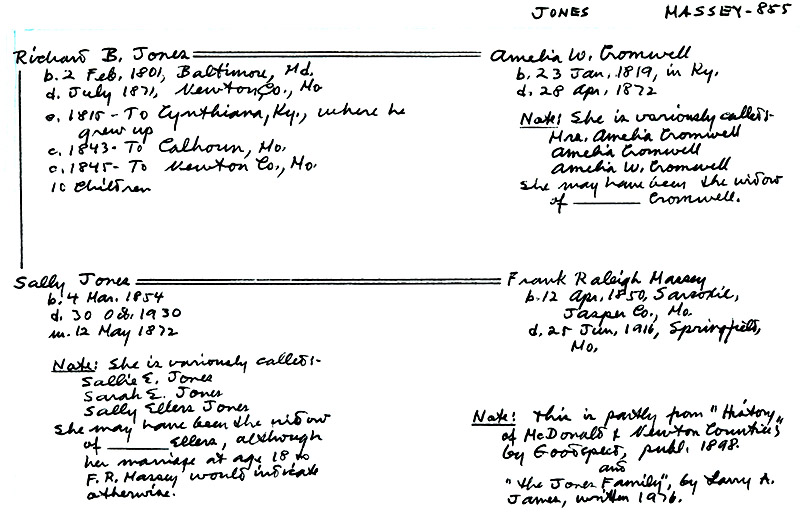 JONES MASSEY-855
Richard B. Jones
b. 2 Feb. 1801, Baltimore, Md.
d. July 1871, Newton Co., Mo
c. 1815 - To Cynthiana, Ky., where he
grew up
c. 1843 - To Calhoun, Mo.
c. 1845 - To Newton Co., Mo.
10 Children
Amelia W. Cromwell
b. 23 Jan. 1819, in Ky.
d. 28 Apr. 1872
Note: She is variously called:-
Mrs. Amelia Cromwell
Amelia Cromwell
Amelia W. Cromwell
She may have been the widow
of ______ Cromwell.
Sally Jones
b. 4 Mar. 1854
d. 30 Oct. 1930
m. 12 May 1872
Note: She is variously called:-
Sallie E. Jones
Sarah E. Jones
Sally Ellers Jones
She may have been the widow
of ______ Ellers, although
her marriage at age 18 to
F. R. Massey would indicate
otherwise.
Frank Raleigh Massey
b. 12 Apr. 1850, Sarcoxie,
Jasper Co., Mo.
d. 25 Jun. 1916, Springfield,
Mo.
Note: This is partly from "History
of McDonald & Newton Counties"
by Goodspeed, publ. 1898.
and
"The Jones Family", by Larry A.
James, written 1976.